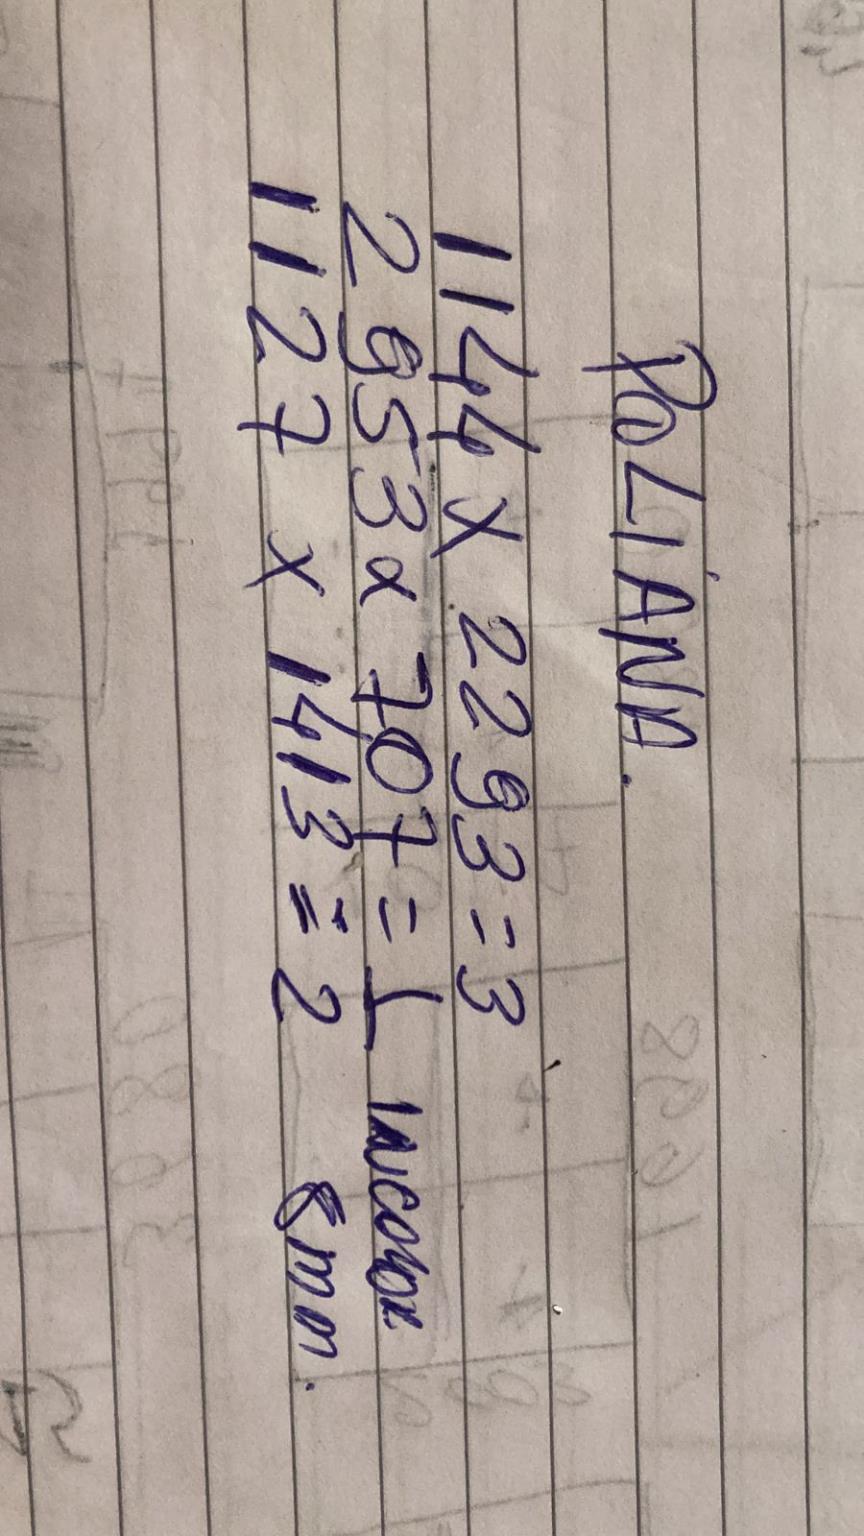 POLIANA.
1144 x 2293 = 3
2953 x 707 = 1 incolor
1127 x 1413 = 2 8mm.